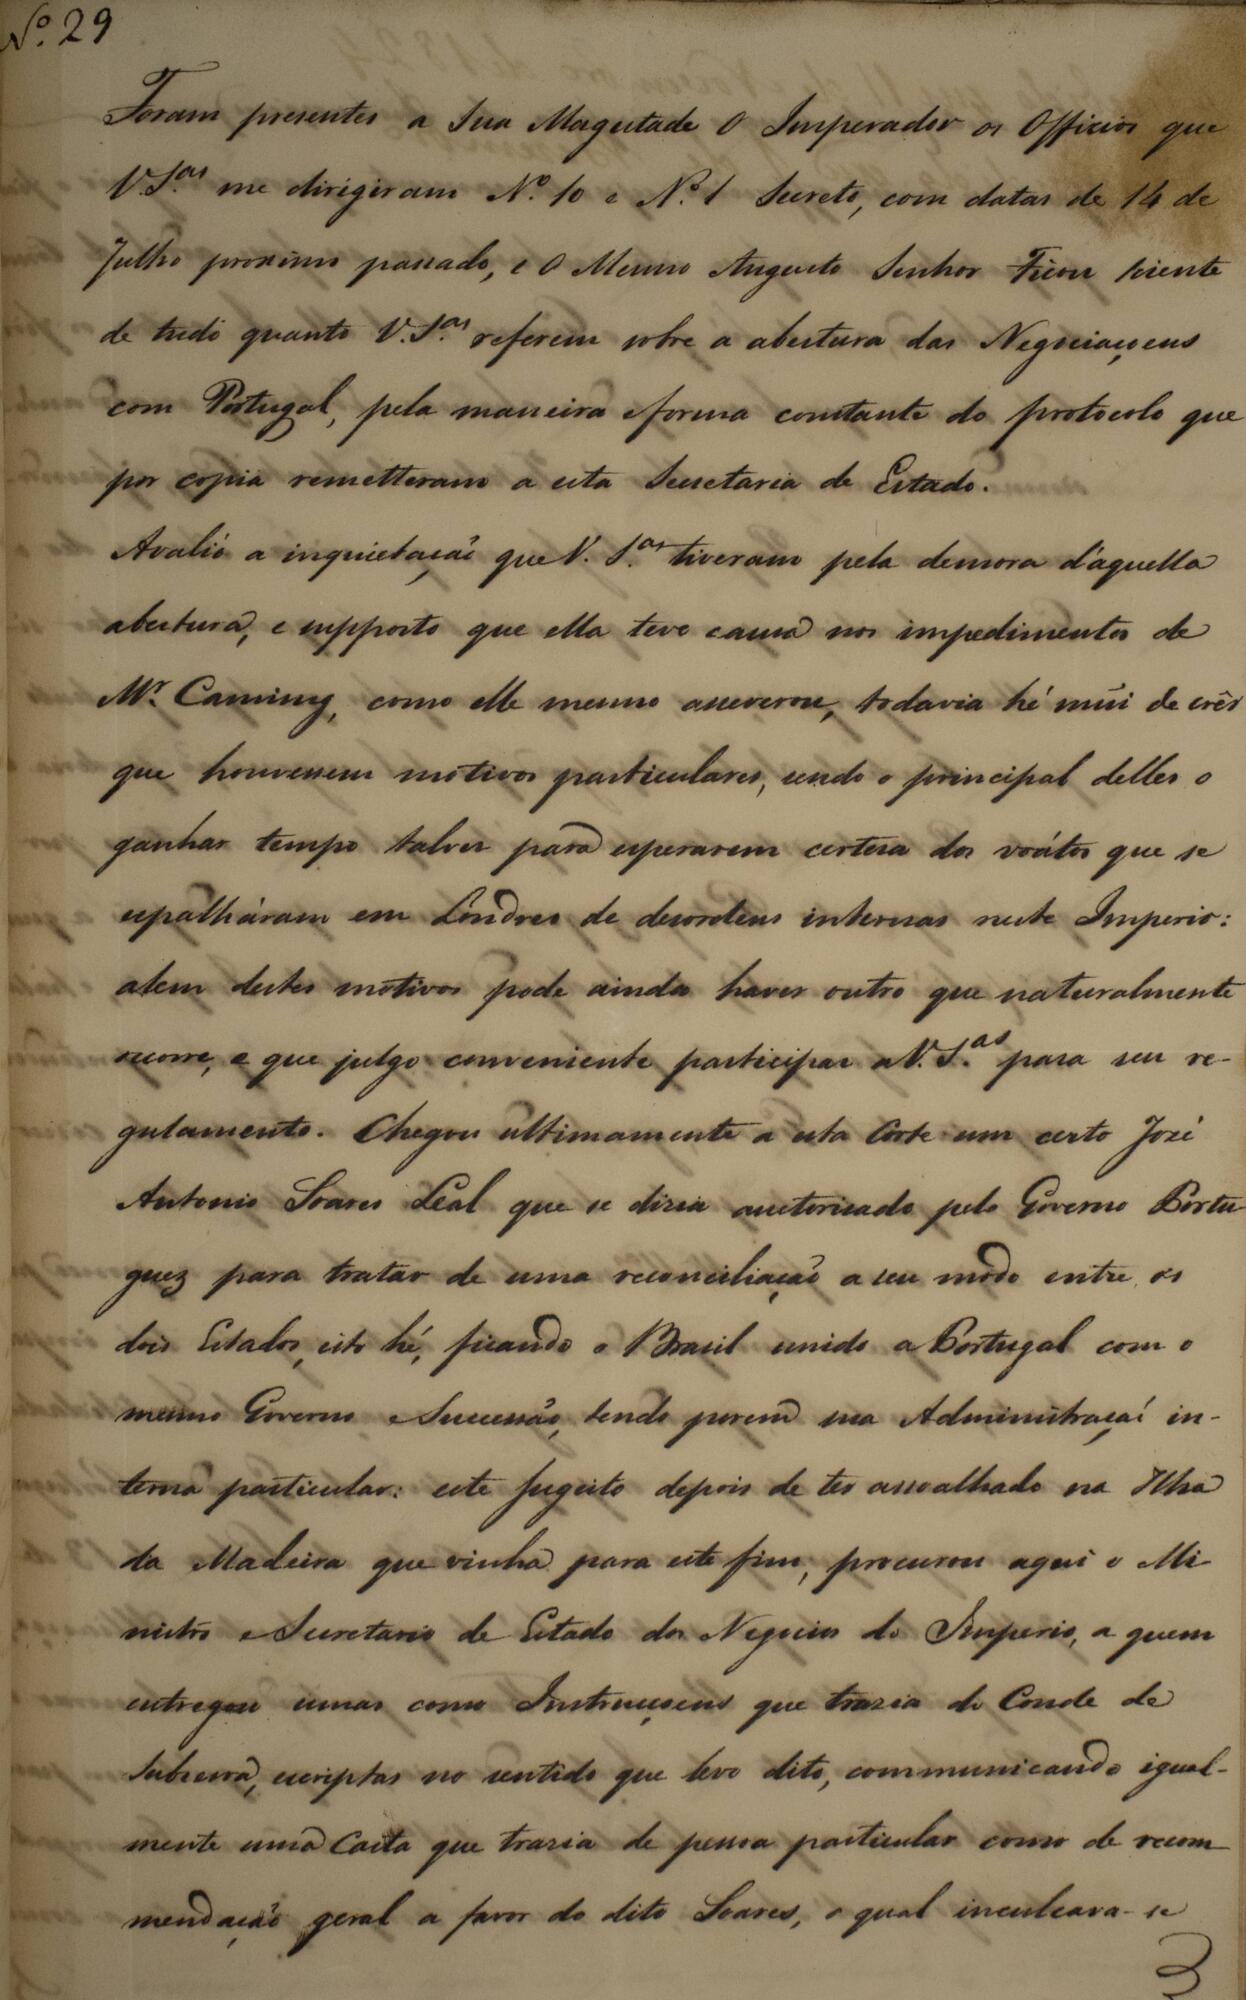 Nº. 29
Foram presentes a Sua Magestade O Imperador os Officios que
V.S.as me dirigiram Nº. 10 e Nº. 1 Secreto, com datas de 14 de
Julho proximo passado, e O Mesmo Augusto Senhor Ficou sciente
de tudo quanto V.S.as referem sobre a abertura das Negociaçoens
com Portugal, pela maneira e forma constante do protocolo que
por copia remetteram a esta Secretaria de Estado.
Avalio a inquietação que V. S.as tiveram pela demora d'aquella
abertura, e supposto que ella teve causa nos impedimentos de
Mr. Canning, como elle mesmo asseverou, todavia hé mũi de crêr
que houvessem motivos particulares, sendo o principal delles o
ganhar tempo talvez para esperarem certesa dos voátos que se
espalháram em Londres de desordens internas neste Imperio:
alem destes motivos pode ainda haver outro que naturalmente
ocorre, e que julgo conveniente participar a V.S.as para seu re-
gulamento. Chegou ultimamente a esta Corte um certo José
Antonio Soares Leal que se dizia auctorisado pelo Governo Portu
guez para tratar de uma reconciliação a seu modo entre os
dois Estados, isto hé, ficando o Brasil unido a Portugal com o
mesmo Governo e Sucessão, tendo porem sua Administraçaí in-
terna particular: este sugeito depois de ter assoalhado na Ilha
da Madeira que vinha para este fim, procurou aqui o Mi-
nistro e Secretario de Estado dos Negocios do Imperio, a quem
entregou umas como Instrucçoens que trazia do Conde de
Subserra, escriptas no sentido que levo dito, communicando igual-
mente uma Carta que trazia de pessoa particular como de recom
mendação geral a favor do dito Soares, o qual inculcava-se
3